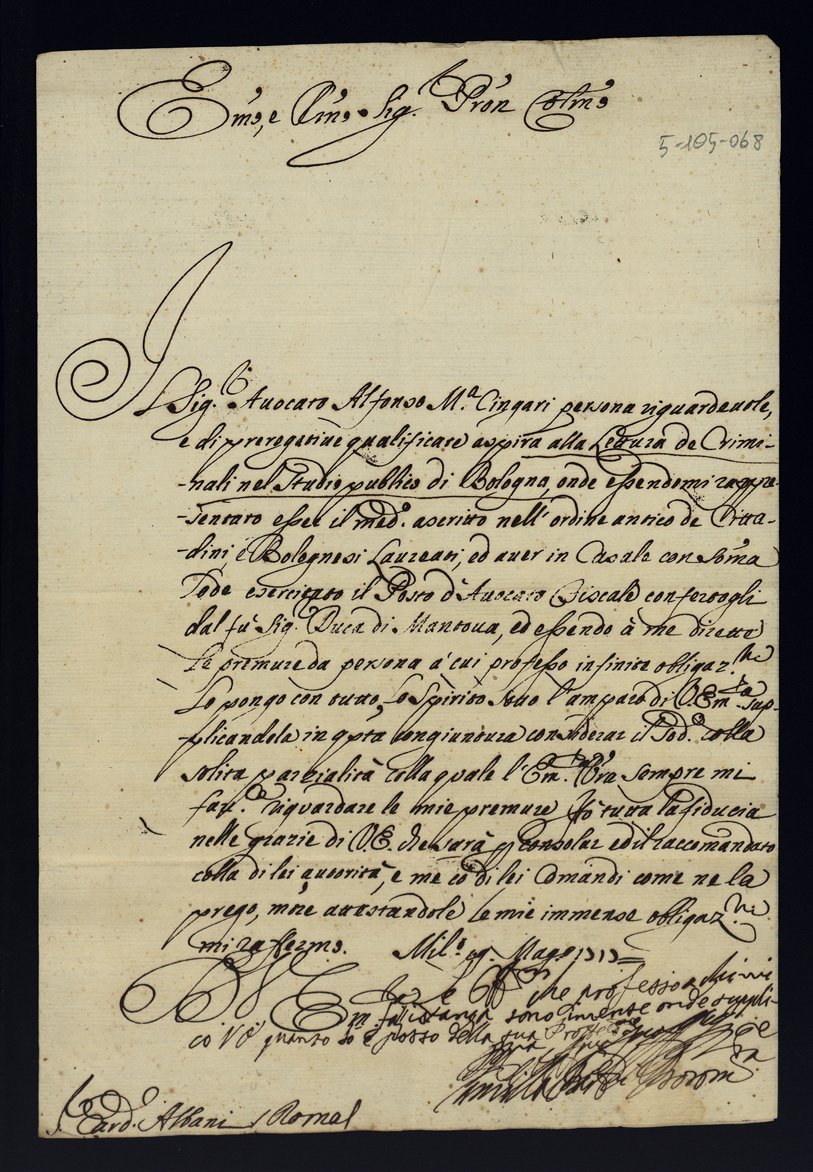 Em̃o, e Rm̃o Sig.r Pron Colm̃o
5-105-068
Il Sig.r Auocato Alfonso M.a Cingari persona riguardeuole,
e di prerogatiue qualificate aspira alla Lettura de Crimi-
-nali nel Studio publico di Bologna, onde essendomi rappre-
-sentato esser il med.o ascritto nell'ordine antico de Citta-
-dini, e Bolognesi Laureati, ed auer in Casale con som̃a
lode esercitato il Posto d'Auocato Fiscale conferitogli
dal fù Sig.r Duca di Mantoua, ed essendo à me dirette
le premure da persona a' cui professo infinite obligaz.ni
Lo pongo con tutto lo Spirito sotto l'amparo di V. Em.za sup-
-plicandola in qpta congiuntura considerar il Sod.o colla
solita parzialità colla quale l'Em.za Vra sempre mi
fau.ce riguardare le mie premure. Hò tutta la fiducia
nelle grazie di V.E. che sarà p consolar ed il raccomandato
colla di lei autorità, e me co di lei Comandi come ne la
prego, mentre attestandole le mie immense obligaz.ni
mi raffermo. Mil.o 19. Mago 1713
D V Em.za
che professo a chi mi
fa l'istanza sono imense onde supli-
co V E quanto so e posso della sua
S.r Card. Albani Roma